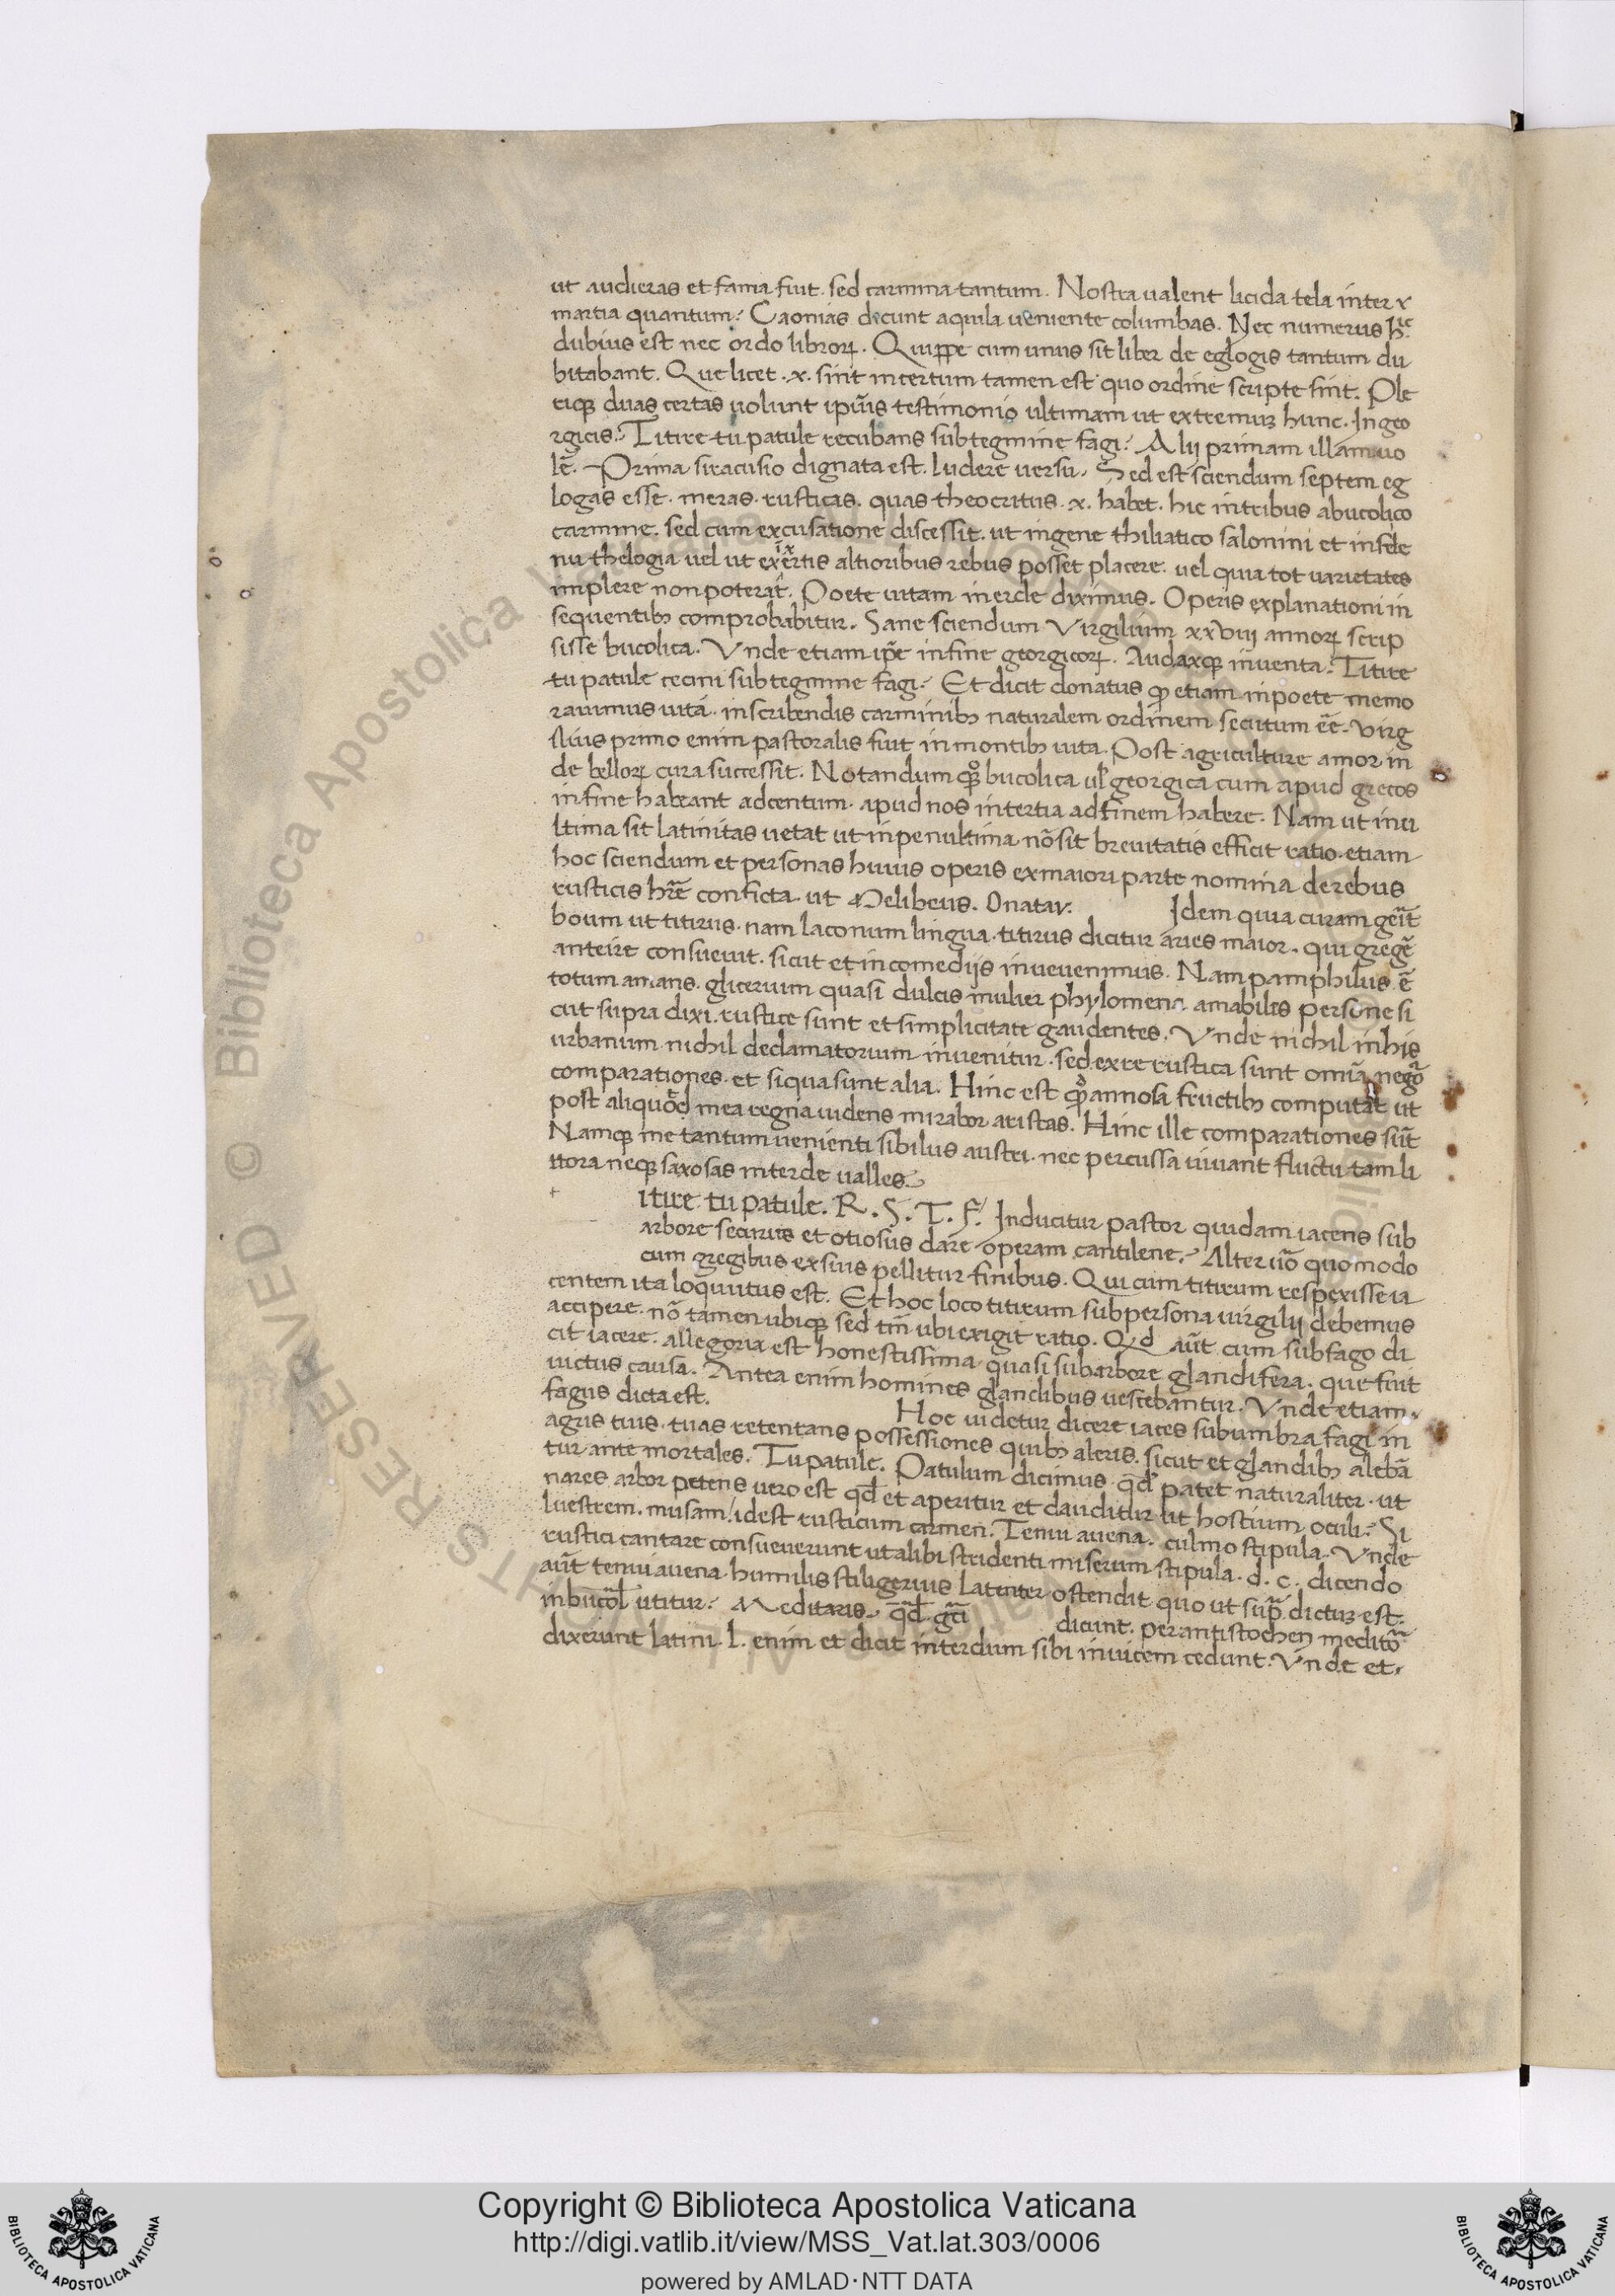 ut audieras et fama fuit. sed carmina tantum. Nostra ualent licida tela inter r
martia quantum. Caonias dicunt aquila ueniente columbas. Nec numerus hic
dubius est nec ordo libroꝝ. Quippe cum unus sit liber de eglogis tantum du
bitabant. Que licet .x. sint incertum tamen est quo ordine scripte sint. Ple
riqꝫ duas certas uolunt ipius testimonio ultimam ut extremuꝫ hunc. In geo
rgicis. Titire tu patule recubans sub tegmine fagi. Alij primam illam uo
lē. Prima siracusio dignata est. ludere uersu. Sed est sciendum septem eg
logas esse. meras. rusticas. quas theocritus .x. habet. hic in tribus a bucolico
carmine. sed cum excusatione discessit. ut in gene thiliatico salonini et in side
nu thelogia uel ut altioribus rebus posset placere. uel quia tot uarietates
implere non poterat. Poete uitam in ercle diximus. Operis explanationi in
sequentibꝫ comprobabitur. Sane sciendum Virgilium xxviij annoꝝ scrip
sisse bucolica. Vnde etiam ip̄e in fine georgicoꝝ. Audaxqꝫ inuenta. Titire
tu patule cecini sub tegmine fagi. Et dicit donatus ꝙ etiam in poete memo
rauimus uitā. in scribendis carminibꝫ naturalem ordinem secutum eē. Virg
ilius primo enim pastoralis fuit in montibꝫ uita. Post agriculture amor in
de belloꝝ cura successit. Notandum ꝙ bucolica ul̓ georgica cum apud grecos
in fine habeant adcentum. apud nos in tertia ad finem habere. Nam ut in u
ltima sit latinitas uetat ut in penultima nō sit breuitatis efficit ratio. etiam
hoc sciendum et personas huius operis ex maiori parte nomina de rebus
rusticis hr̄e conficta. ut Melibeus. Onatar. Idem quia curam geīt
boum ut titirus. nam laconum lingua. titirus dicitur aries maior. qui gregē
anteire consueuit. sicut et in comedijs inuevenimus. Nam pamphilus. ē
totum amans. glicerium quasi dulcis mulier phylomena. amabiles persone si
cut supra dixi. rustice sunt et simplicitate gaudentes. Vnde nichil in his
urbanum nichil declamatorium inuenitur. sed ex re rustica sunt omīa negō
comparationes. et siqua sunt alia. Hinc est ꝙ annosa fructibꝫ computat ut
post aliquod mea regna uidens mirabor aristas. Hinc ille comparationes sūt
Namqꝫ me tantum uenienti sibilus austri. nec percussa iuuant fluctu tam li
ttora neqꝫ saxosas inter de ualles.
itire tu patule. R. S. T. F. Inducitur pastor quidam iacens sub
arbore securus et otiosus dare operam cantilene. Alter uō quomodo
cum gregibus ex suis pellitur finibus. Qui cum titirum respexisse ia
centem ita loquutus est. Et hoc loco titirum sub persona uirgilij debemus
accipere. nō tamen ubiqꝫ sed tm̄ ubi exigit ratio. Qd aūt cum sub fago di
cit iacere. allegoria est honestissima quasi sub arbore glandifera. que fuit
uictus causa. Antea enim homines glandibus uescebantur. Vnde etiam.
fagus dicta est. Hoc uidetur dicere iaces sub umbra fagi in
agris tuis. tuas retentans possessiones quibꝫ aleris. sicut et glandibꝫ alebā
tur ante mortales. Tu patule. Patulum dicimus qd̄ patet naturaliter. ut
nares arbor petens uero est qd̄ et aperitur et clauditur ut hostium oculi. Si
luestrem. musam. idest rusticum carmen. Tenui auena. culmo stipula. Vnde
rustici cantare consueuerunt ut alibi stridenti miserum stipula. d. c. dicendo
aūt tenui auena. humilis stiligerius latenter ostendit quo ut sup̄ dictuꝫ est.
in bucol̄ utitur. Meditaris. qd̄ gc̄i dicunt. per antistochen meditō
dixerunt latini. l. enim et dicit interdum sibi inuicem cedunt. Vnde et.
Copyright © Biblioteca Apostolica Vaticana
http://digi.vatlib.it/view/MSS_Vat.lat.303/0006
powered by AMLAD·NTT DATA
BIBLIOTECA APOSTOLICA VATICANA
BIBLIOTECA APOSTOLICA VATICANA